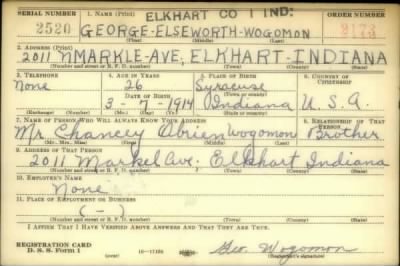 SERIAL NUMBER 1. NAME (Print) ELKHART CO 1 IND: ORDER NUMBER
2520 GEORGE-ELSEWORTH-WOGOMON 3173
(First) (Middle) (Last)
2. ADDRESS (Print)
2011 N MARKLE-AVE, ELKHART-INDIANA
(Number and street or R. F. D. number) (Town) (County) (State)
3. TELEPHONE 4. AGE IN YEARS 5. PLACE OF BIRTH 6. COUNTRY OF CITIZENSHIP
None 26 Syracuse
DATE OF BIRTH (Town or county)
3-7-1914 Indiana U. S. A.
(Exchange) (Number) (Mo.) (Day) (Yr.) (State or country)
7. NAME OF PERSON WHO WILL ALWAYS KNOW YOUR ADDRESS 8. RELATIONSHIP OF THAT PERSON
Mr Chancey Obrien Wogomon Brother
(Mr., Mrs., Miss) (First) (Middle) (Last)
9. ADDRESS OF THAT PERSON
2011 Markel Ave; Elkhart Indiana
(Number and street or R. F. D. number) (Town) (County) (State)
10. EMPLOYER'S NAME
None
11. PLACE OF EMPLOYMENT OR BUSINESS
(-)
(Number and street or R. F. D. number) (Town) (County) (State)
I AFFIRM THAT I HAVE VERIFIED ABOVE ANSWERS AND THAT THEY ARE TRUE.
REGISTRATION CARD
D. S. S. Form 1 16-17105 Geo. Wogomon
(Registrant's signature)